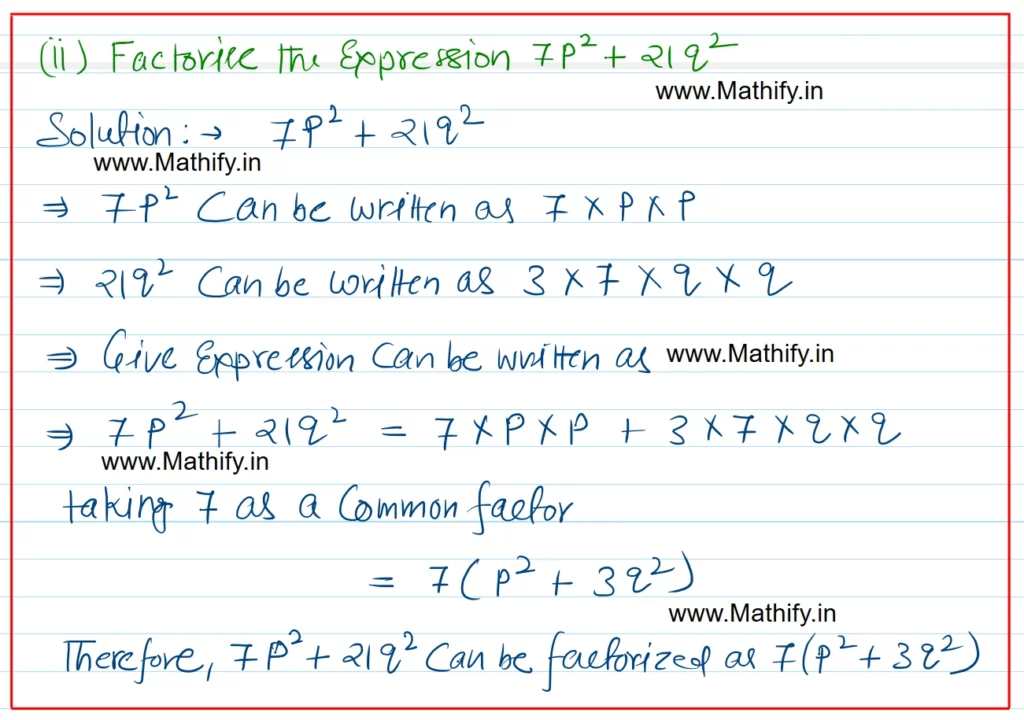 (ii) Factorise the Expression 7p² + 21q²
www.Mathify.in
Solution:→ 7p² + 21q²
www.Mathify.in
⇒ 7p² Can be written as 7 × p × p
⇒ 21q² Can be written as 3 × 7 × q × q
⇒ Give Expression Can be written as www.Mathify.in
⇒ 7p² + 21q² = 7 × p × p + 3 × 7 × q × q
www.Mathify.in
taking 7 as a Common factor
= 7(p² + 3q²)
www.Mathify.in
Therefore, 7p² + 21q² Can be factorized as 7(p² + 3q²)